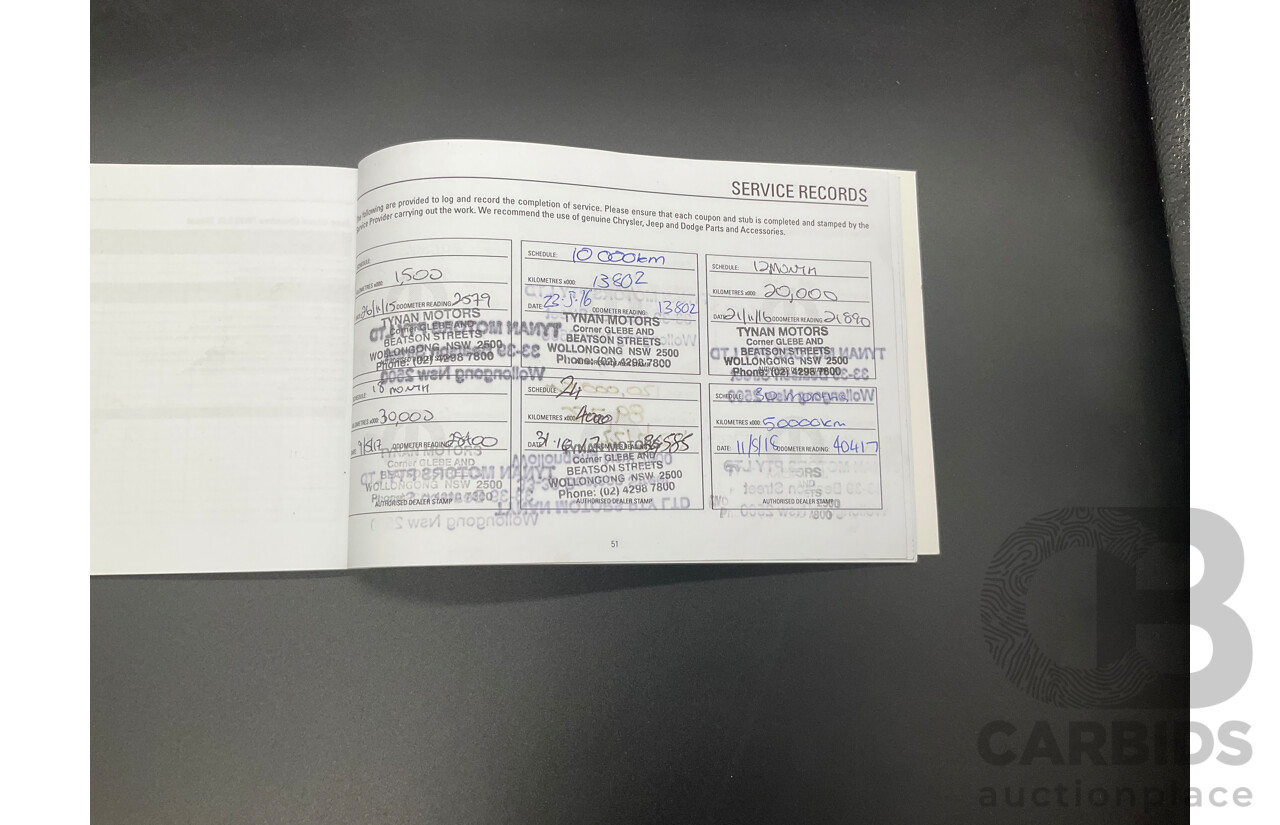 SERVICE RECORDS
following are provided to log and record the completion of service. Please ensure that each coupon and stub is completed and stamped by the
Service Provider carrying out the work. We recommend the use of genuine Chrysler, Jeep and Dodge Parts and Accessories.
KILOMETRES x000: 1,500
26/11/15 ODOMETER READING: 2579
TYNAN MOTORS
Corner GLEBE AND
BEATSON STREETS
WOLLONGONG NSW 2500
Phone: (02) 4298 7800
SCHEDULE: 10 000km
KILOMETRES x000: 13802
DATE: 23.5.16 ODOMETER READING: 13802
TYNAN MOTORS
Corner GLEBE AND
BEATSON STREETS
WOLLONGONG NSW 2500
Phone: (02) 4298 7800
SCHEDULE: 12 MONTH
KILOMETRES x000: 20,000
DATE: 21/11/16 ODOMETER READING: 21890
TYNAN MOTORS
Corner GLEBE AND
BEATSON STREETS
WOLLONGONG NSW 2500
Phone: (02) 4298 7800
18 MONTH
KILOMETRES x000: 30,000
ODOMETER READING: 28400
TYNAN MOTORS
Corner GLEBE AND
BEATSON STREETS
WOLLONGONG NSW 2500
Phone: (02) 4298 7800
AUTHORISED DEALER STAMP
SCHEDULE: 24
KILOMETRES x000: 4000
DATE: 31.10.17
TYNAN MOTORS
Corner GLEBE AND
BEATSON STREETS
WOLLONGONG NSW 2500
Phone: (02) 4298 7800
AUTHORISED DEALER STAMP
SCHEDULE: 30 Months
KILOMETRES x000: 50000km
DATE: 11/5/18 ODOMETER READING: 40417
AUTHORISED DEALER STAMP
51
CARBIDS
auctionplace